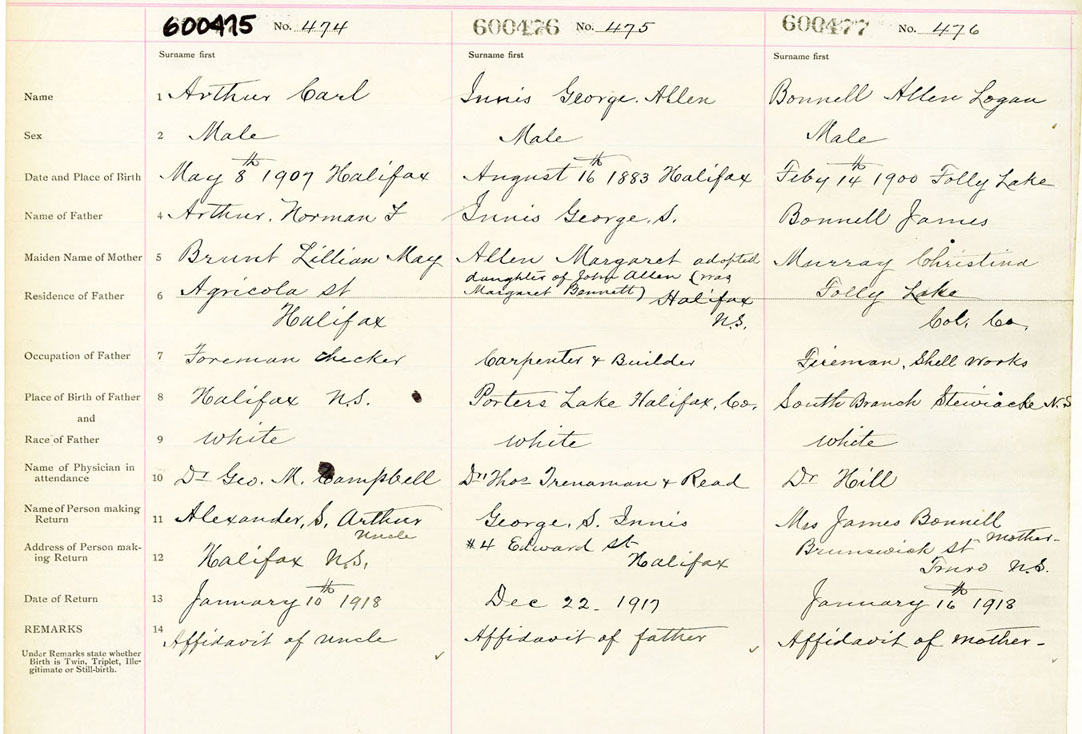 600475 No. 474 600476 No. 475 600477 No. 476
Surname first Surname first Surname first
Name 1 Arthur Carl Innis George. Allen Bonnell Allen Logan
Sex 2 Male Male Male
Date and Place of Birth 3 May 8th 1907 Halifax August 16th 1883 Halifax Feby 14th 1900 Folly Lake
Name of Father 4 Arthur. Norman F Innis George. S. Bonnell James
Maiden Name of Mother 5 Brunt Lillian May Allen Margaret adopted Murray Christina
daughter of John Allen (was
Residence of Father 6 Agricola St Margaret Bennett) Halifax Folly Lake
Halifax N.S. Col. Co.
Occupation of Father 7 Foreman Checker Carpenter & Builder Fireman, Shell Works
Place of Birth of Father 8 Halifax N.S. Porters Lake Halifax, Co. South Branch Stewiacke N.S
and
Race of Father 9 white white white
Name of Physician in
attendance 10 Dr Geo. M. Campbell Dr Thos Trenaman & Read Dr Hill
Name of Person making
Return 11 Alexander, S, Arthur George. S. Innis Mrs James Bonnell
Uncle mother-
Address of Person mak-
ing Return 12 Halifax N.S. #4 Edward St Halifax Brunswick St
Truro N.S.
Date of Return 13 January 10th 1918 Dec 22- 1917 January 16th 1918
REMARKS 14 Affidavit of uncle Affidavit of father Affidavit of mother-
Under Remarks state whether
Birth is Twin, Triplet, Ille-
gitimate or Still-birth.